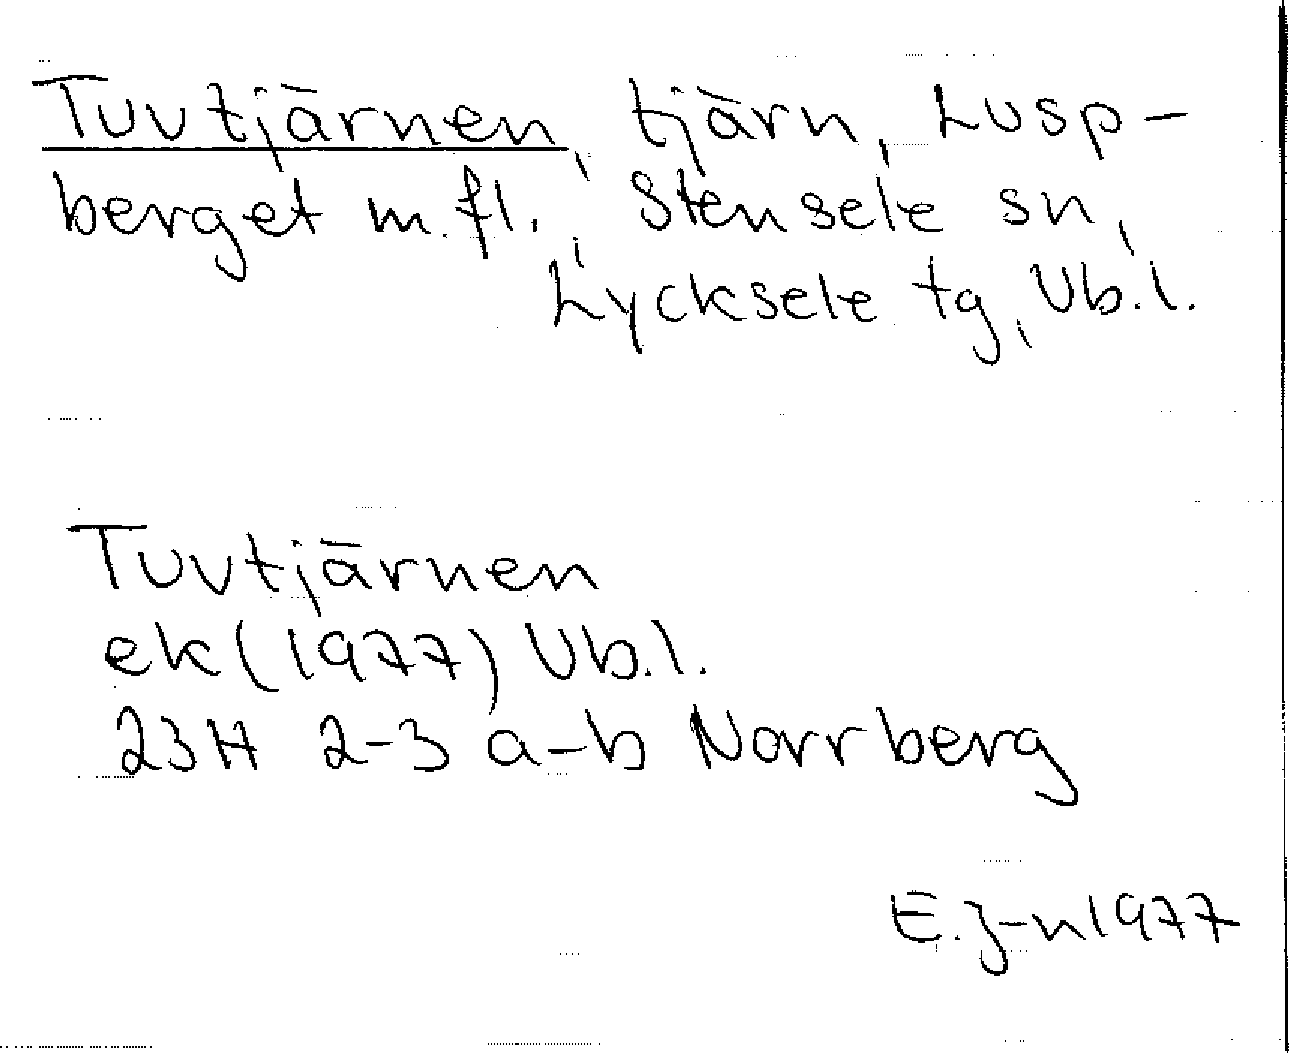 Tuvtjärnen, tjärn, Lusp-
berget m.fl., Stensele sn,
Lycksele tg, Vb.l.
Tuvtjärnen
ek (1977) Vb.l.
23H 2-3 a-b Norrberg
E.J-n 1977